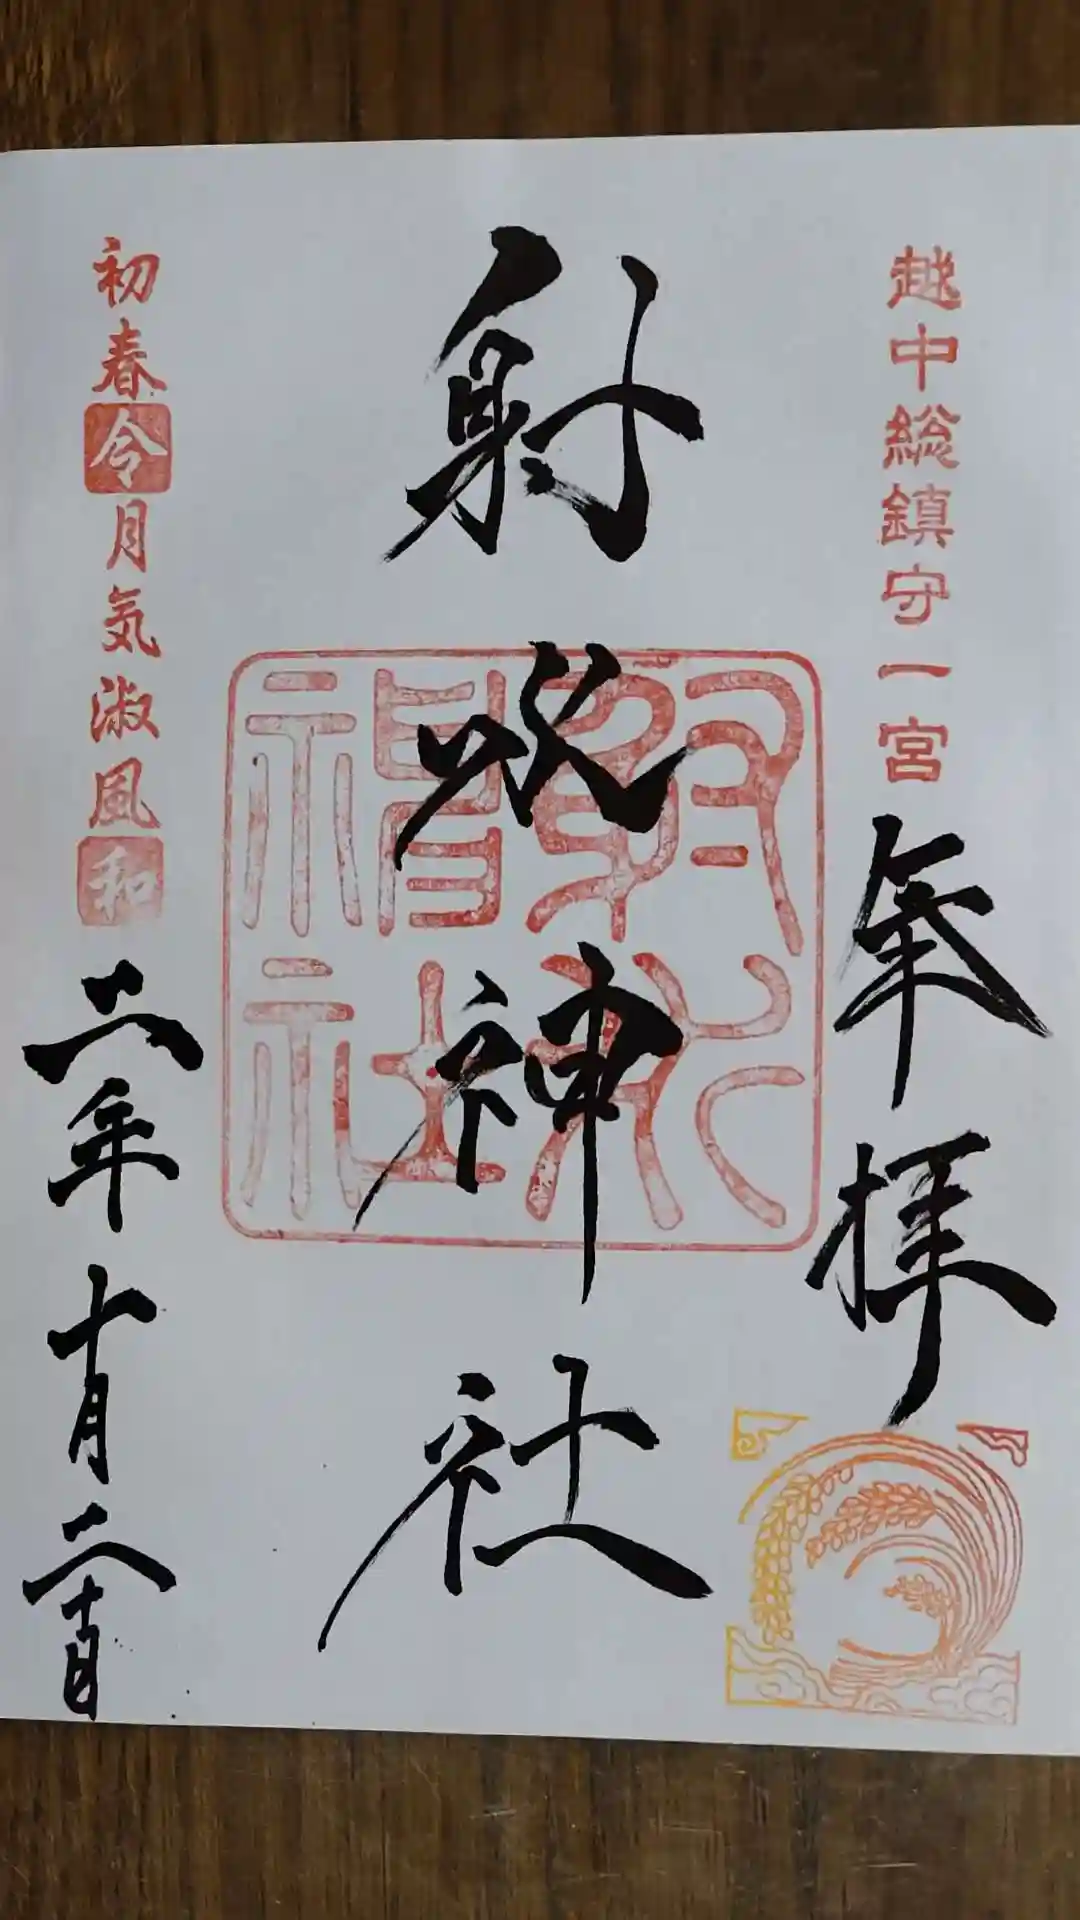 越中総鎮守一宮
奉拝
射水神社
射水神社
初春令月気淑風和
二年十月二十日